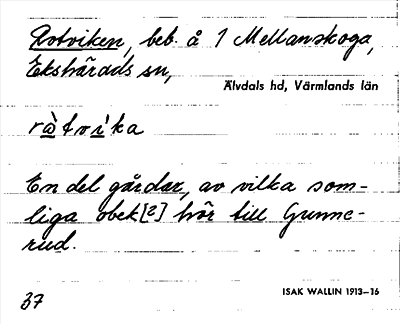 Rotviken, beb. å 1 Mellanskoga,
Ekshärads sn,
Älvdals hd, Värmlands län
ràtvika
En del gårdar, av vilka som-
liga obek[?] hör till Gunne-
rud.
37
ISAK WALLIN 1913–16